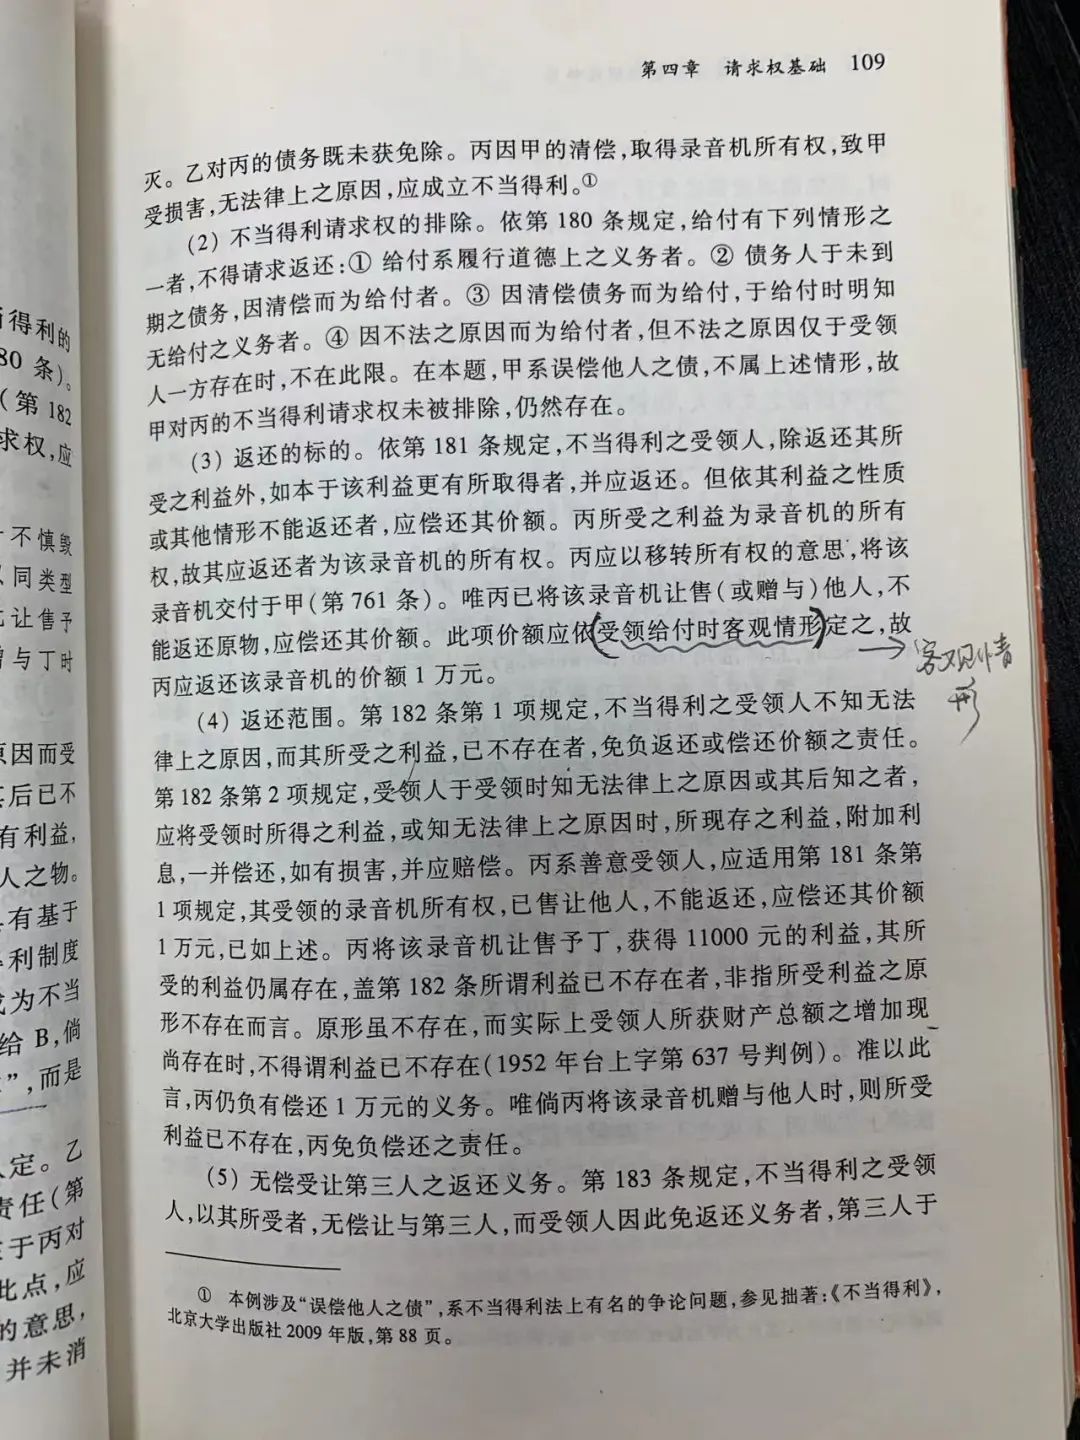 第四章 请求权基础 109
灭。乙对丙的债务既未获免除。丙因甲的清偿,取得录音机所有权,致甲
受损害,无法律上之原因,应成立不当得利。①
(2) 不当得利请求权的排除。依第 180 条规定,给付有下列情形之
一者,不得请求返还:① 给付系履行道德上之义务者。② 债务人于未到
期之债务,因清偿而为给付者。③ 因清偿债务而为给付,于给付时明知
无给付之义务者。④ 因不法之原因而为给付者,但不法之原因仅于受领
人一方存在时,不在此限。在本题,甲系误偿他人之债,不属上述情形,故
甲对丙的不当得利请求权未被排除,仍然存在。
(3) 返还的标的。依第 181 条规定,不当得利之受领人,除返还其所
受之利益外,如本于该利益更有所取得者,并应返还。但依其利益之性质
或其他情形不能返还者,应偿还其价额。丙所受之利益为录音机的所有
权,故其应返还者为该录音机的所有权。丙应以移转所有权的意思,将该
录音机交付于甲(第 761 条)。唯丙已将该录音机让售(或赠与)他人,不
能返还原物,应偿还其价额。此项价额应依(受领给付时客观情形)定之,故
客观情
形
丙应返还该录音机的价额 1 万元。
(4) 返还范围。第 182 条第 1 项规定,不当得利之受领人不知无法
律上之原因,而其所受之利益,已不存在者,免负返还或偿还价额之责任。
第 182 条第 2 项规定,受领人于受领时知无法律上之原因或其后知之者,
应将受领时所得之利益,或知无法律上之原因时,所现存之利益,附加利
息,一并偿还,如有损害,并应赔偿。丙系善意受领人,应适用第 181 条第
1 项规定,其受领的录音机所有权,已售让他人,不能返还,应偿还其价额
1 万元,已如上述。丙将该录音机让售予丁,获得 11000 元的利益,其所
受的利益仍属存在,盖第 182 条所谓利益已不存在者,非指所受利益之原
形不存在而言。原形虽不存在,而实际上受领人所获财产总额之增加现
尚存在时,不得谓利益已不存在(1952 年台上字第 637 号判例)。准以此
言,丙仍负有偿还 1 万元的义务。唯倘丙将该录音机赠与他人时,则所受
利益已不存在,丙免负偿还之责任。
(5) 无偿受让第三人之返还义务。第 183 条规定,不当得利之受领
人,以其所受者,无偿让与第三人,而受领人因此免返还义务者,第三人于
① 本例涉及“误偿他人之债”,系不当得利法上有名的争论问题,参见拙著:《不当得利》,
北京大学出版社 2009 年版,第 88 页。
得利的
80 条)。
(第 182
求权,应
不慎毁
同类型
让售予
与丁时
因而受
后已不
有利益,
人之物。
有基于
利制度
成为不当
给 B,倘
”,而是
定。乙
责任(第
于丙对
此点,应
的意思,
并未消